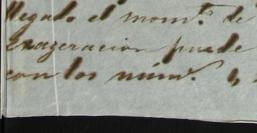 llegado el mom.to de
exageracion puede
con los núm.s